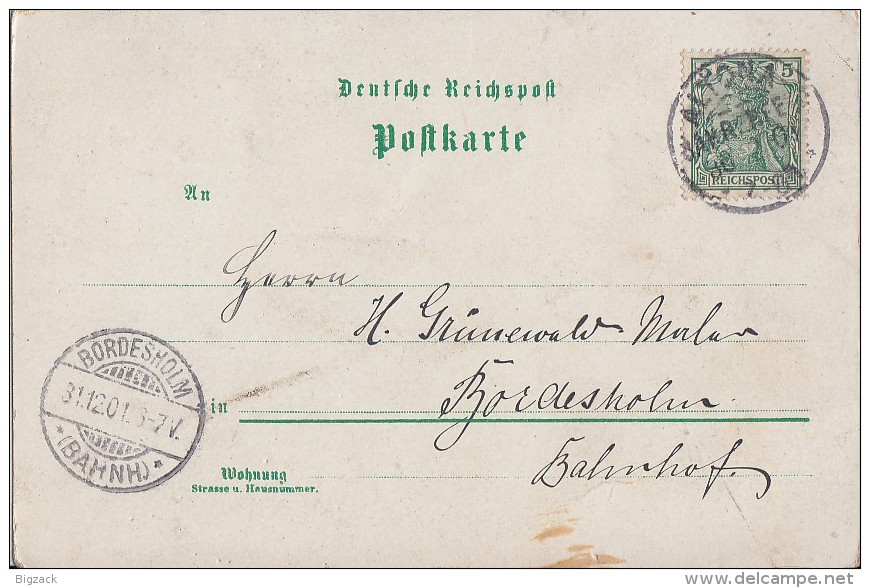 Deutsche Reichspost
Postkarte
An
5 5
REICHSPOST
ALTONA
Herrn
H. Grünewald Maler
in Bordesholm
Bahnhof.
Wohnung
Strasse u. Hausnummer.
BORDESHOLM
31.12.01. 6-7 V.
* (BAHNH) *
Bigzack
www.delcampe.net